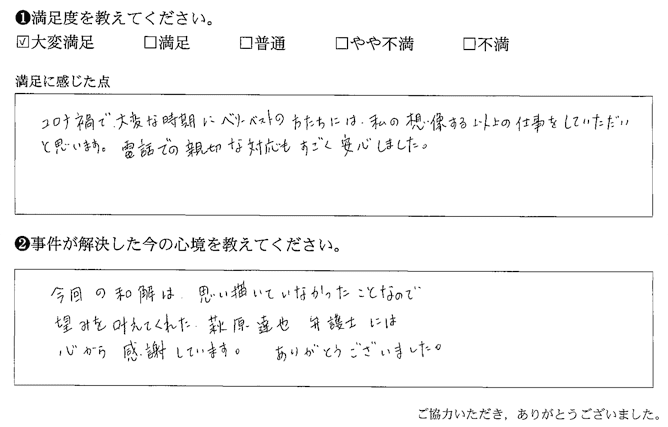 ❶満足度を教えてください。
☑大変満足 □満足 □普通 □やや不満 □不満
満足に感じた点
コロナ禍で、大変な時期にベリーベストの方たちには、私の想像する以上の仕事をしていただい
と思います。電話での親切な対応もすごく安心しました。
❷事件が解決した今の心境を教えてください。
今回の和解は、思い描いていなかったことなので
望みを叶えてくれた、萩原達也 弁護士には
心から感謝しています。 ありがとうございました。
ご協力いただき，ありがとうございました。